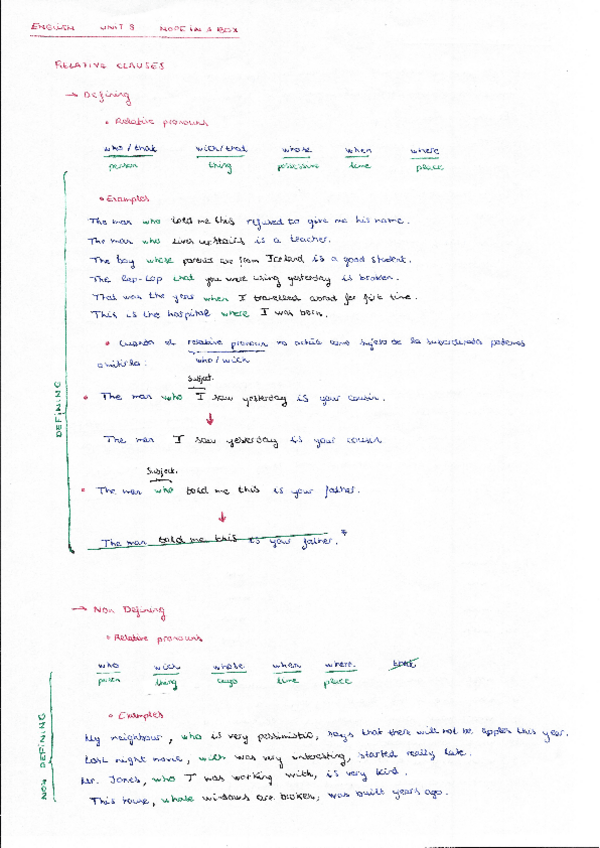 ENGLISH UNIT 8 NOPE IN A BOX
RELATIVE CLAUSES
→ Defining
• Relative pronouns
who / that wich / that whose when where
person thing possessive time place
• Examples
The man who told me this refused to give me his name.
The man who lives upstairs is a teacher.
The boy whose parents are from Iceland is a good student.
The lap-top that you were using yesterday is broken.
That was the year when I travelled abroad for first time.
This is the hospital where I was born.
• Cuando el relative pronoun no actúa como sujeto de la subordinada podemos
omitirla: who / wich
Subject.
• The man who I saw yesterday is your cousin.
↓
The man I saw yesterday is your cousin
Subject.
• The man who told me this is your father.
↓
The man told me this is your father. *
DEFINING
→ Non Defining
• Relative pronouns
who wich whose when where that
person thing time place
• Examples
My neighbour, who is very pessimistic, says that there will not be apples this year.
Last night movie, wich was very interesting, started really late.
Mr. Jones, who I was working with, is very kind.
This house, whose windows are broken, was built years ago.
NON DEFINING